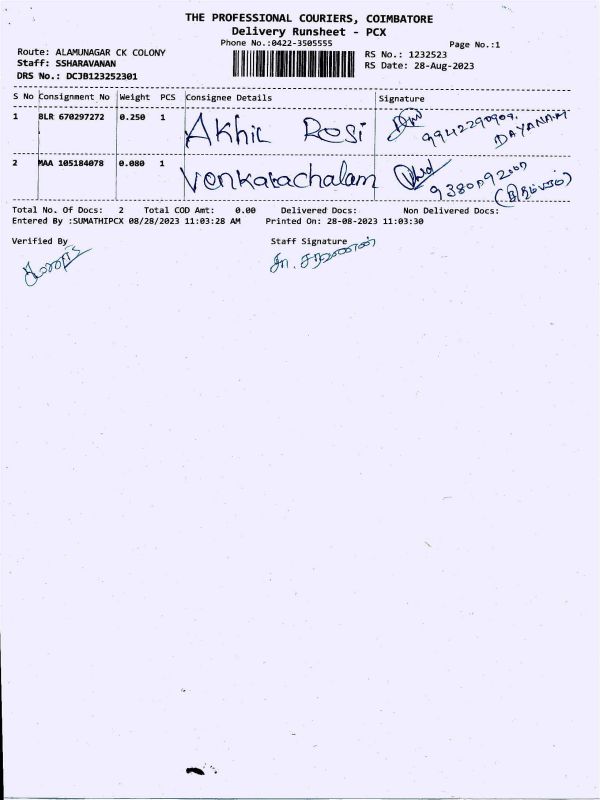 THE PROFESSIONAL COURIERS, COIMBATORE
Delivery Runsheet - PCX
Phone No.:0422-3505555
Page No.:1
Route: ALAMUNAGAR CK COLONY
RS No.: 1232523
Staff: SSHARAVANAN
RS Date: 28-Aug-2023
DRS No.: DCJB123252301
S No Consignment No Weight PCS Consignee Details Signature
1 BLR 670297272 0.250 1 Akhil Rosi 9942290909. DAYANAM
2 MAA 105184078 0.080 1 Venkatachalam
Total No. Of Docs: 2 Total COD Amt: 0.00 Delivered Docs: Non Delivered Docs:
Entered By :SUMATHIPCX 08/28/2023 11:03:28 AM Printed On: 28-08-2023 11:03:30
Verified By Staff Signature
சா. சரவணன்